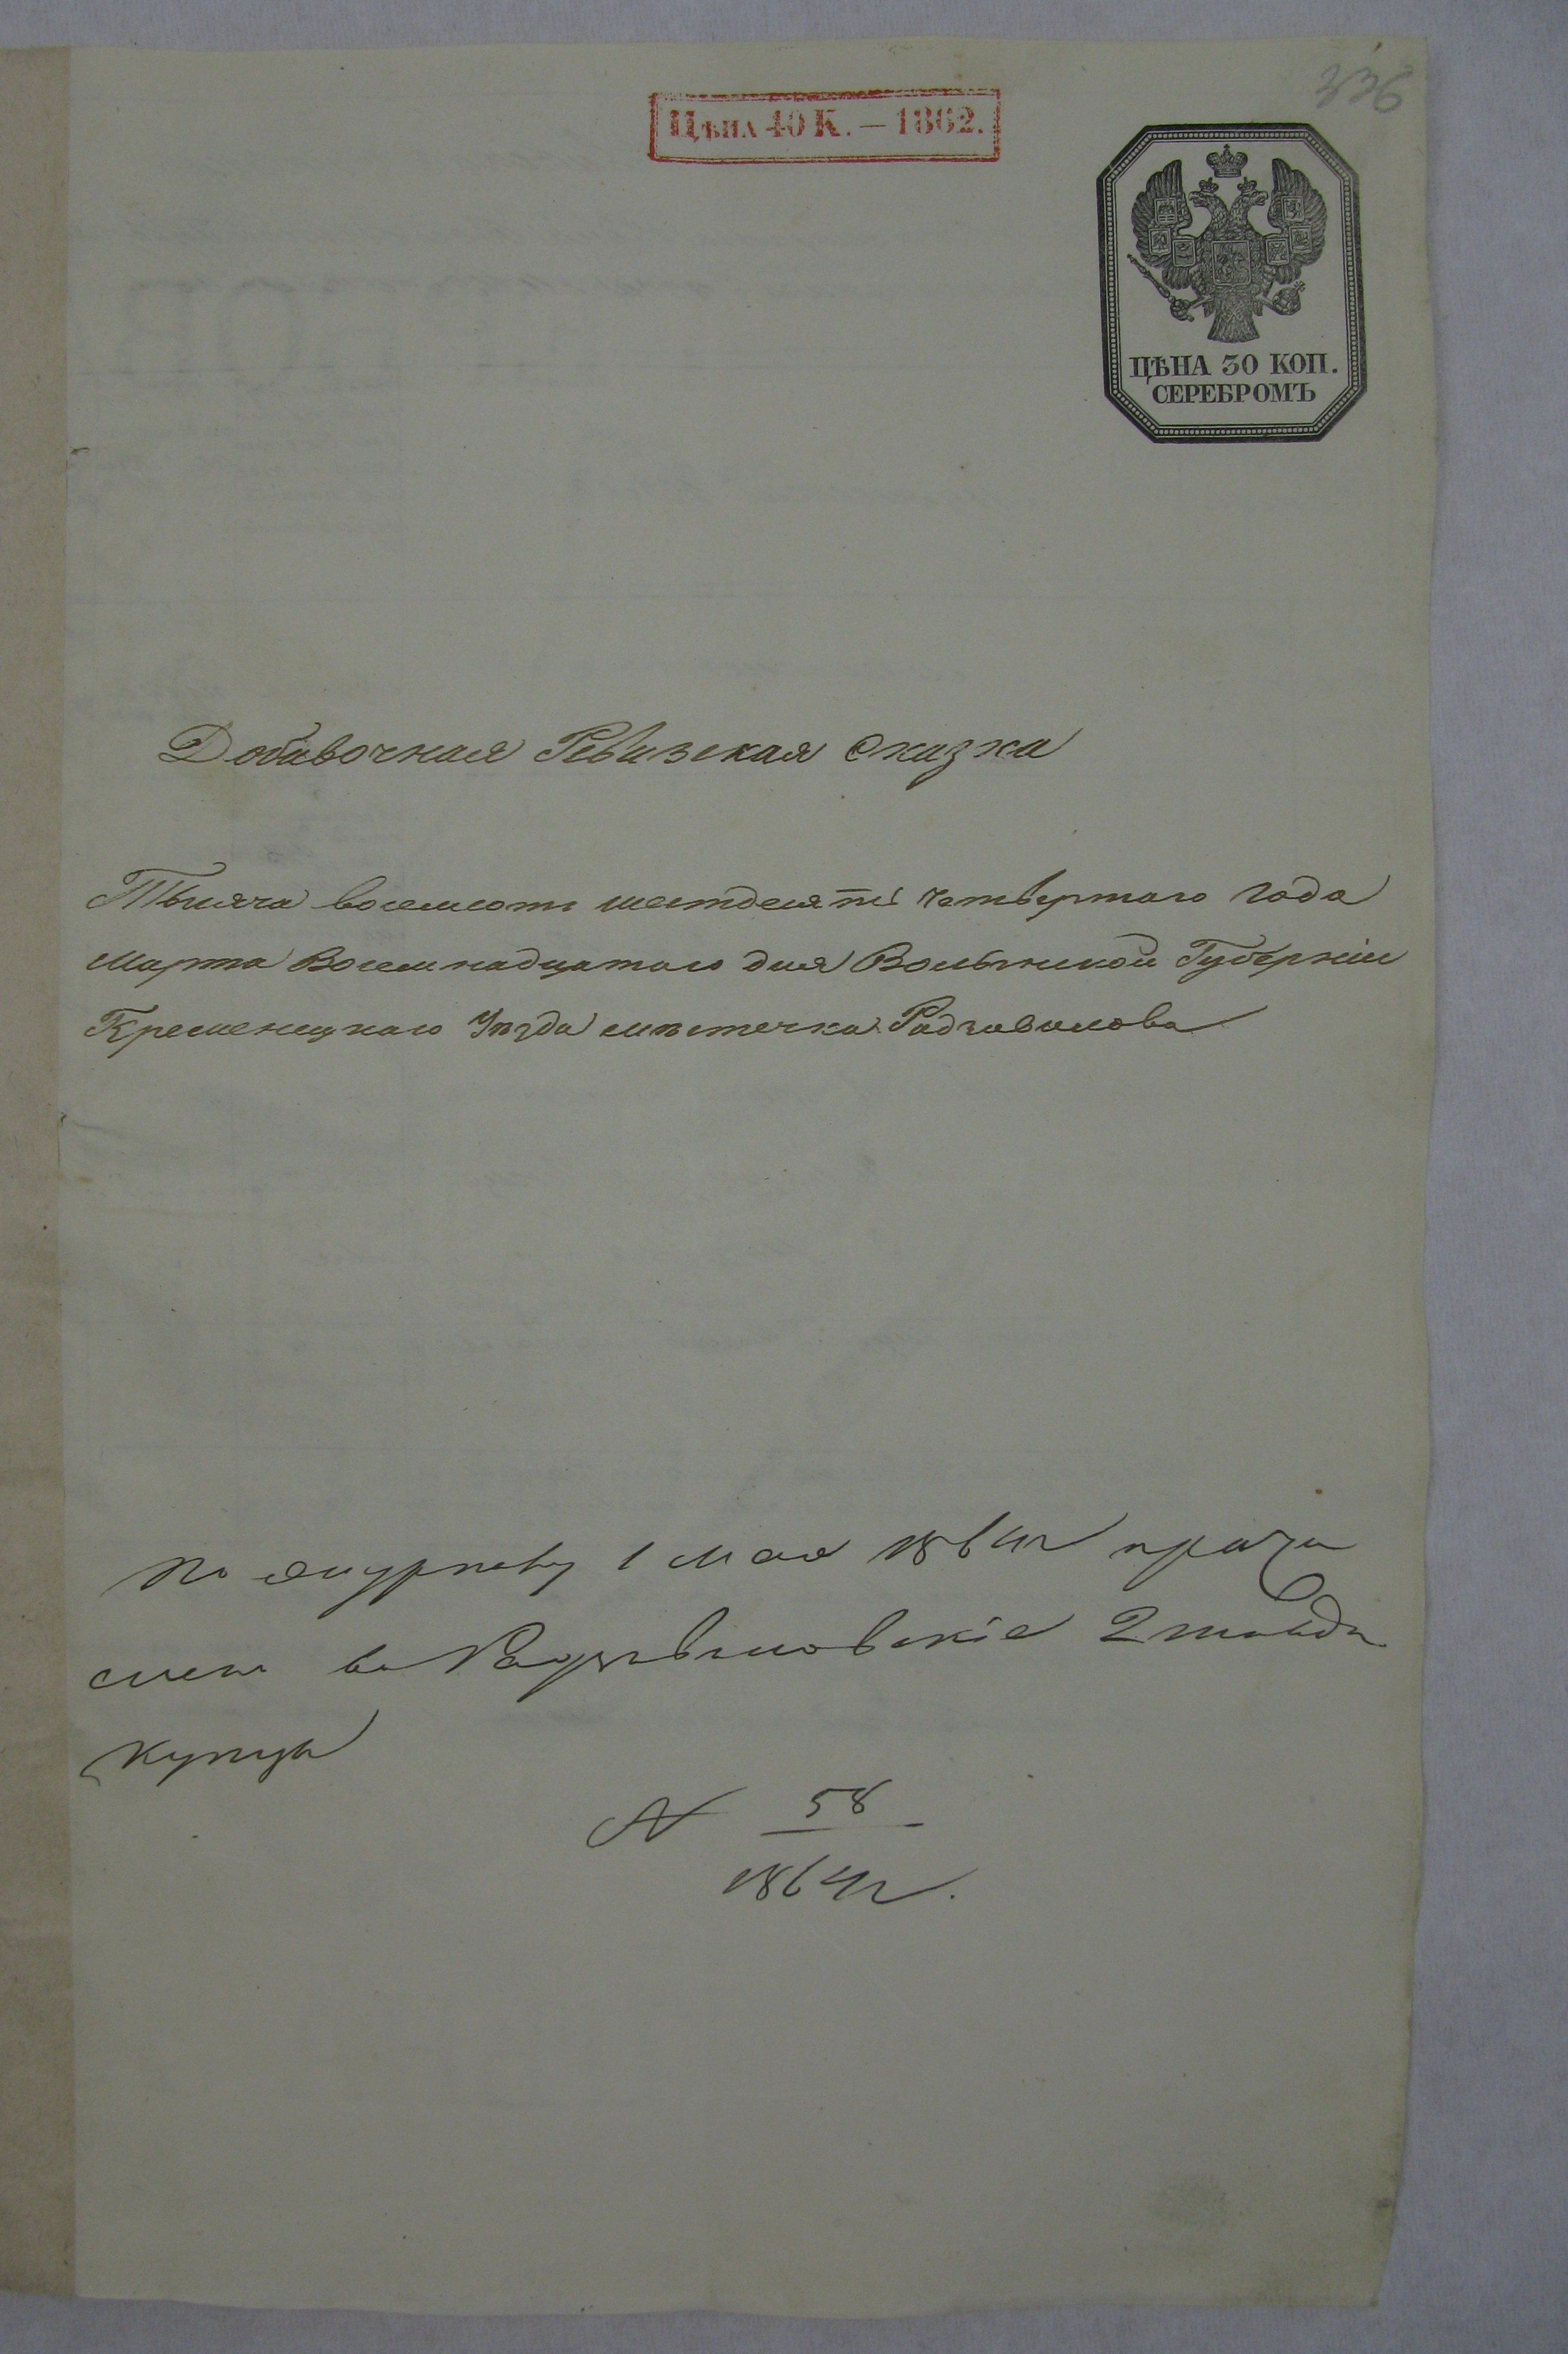 336
Цѣна 40 К. — 1862.
ЦѢНА 30 КОП.
СЕРЕБРОМЪ
Добавочная Ревизская Сказка
Тысяча восемсотъ шестдесятъ четвертаго года
Марта Восемнадцатаго дня Волынской Губерніи
Кременецкаго Уѣзда мѣстечка Радзивилова
По журналу 1 Мая 1864 г причи
слен въ Радзивиловскіе 2 гильди
купцы
N 58
1864 г.